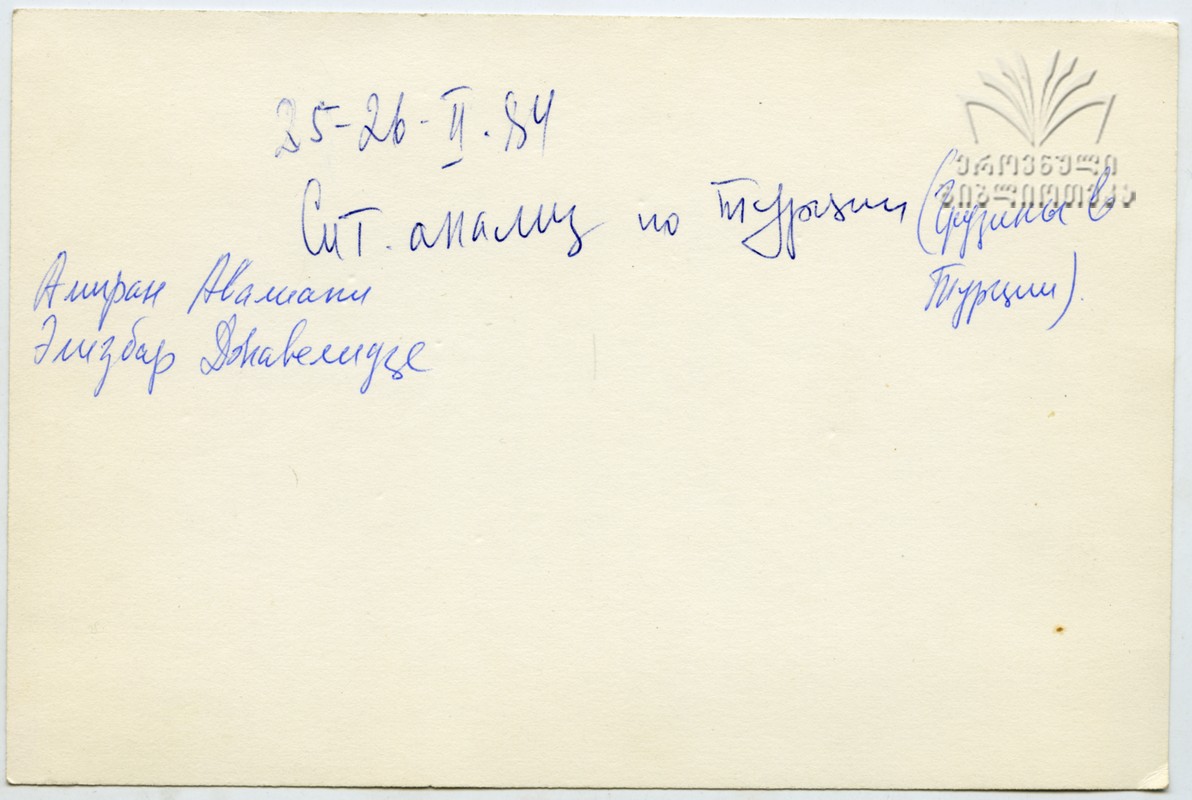 25-26-II.84
Сит. анализ по Турции (Грузины в
Турции).
Амиран
Элизбар Джавелидзе
ეროვნული
ბიბლიოთეკა